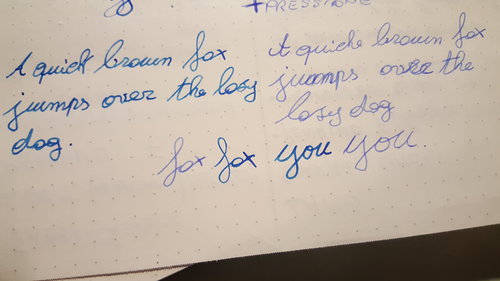 A quick brown fox
jumps over the lasy
dog.
A quick brown fox
jumps over the
lasy dog
fox fox you you.
+PRESSIONE